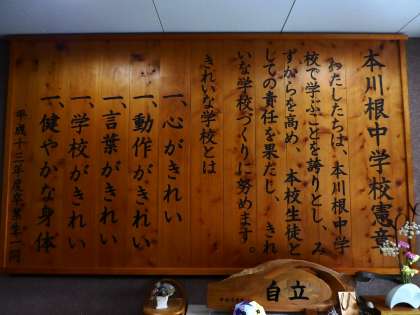 本川根中学校憲章
わたしたちは、本川根中学
校で学ぶことを誇りとし、み
ずからを高め、本校生徒と
しての責任を果たし、きれ
いな学校づくりに努めます。
きれいな学校とは
一、心がきれい
一、動作がきれい
一、言葉がきれい
一、学校がきれい
一、健やかな身体
平成十三年度卒業生一同
自立